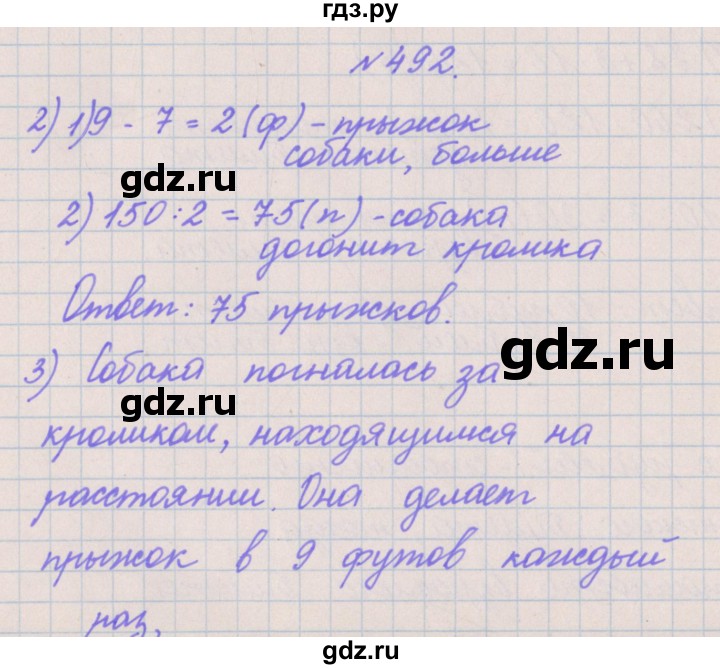 гдз.ру
№492.
2) 1) 9 - 7 = 2 (ф) - прыжок
собаки, больше
gdz.ru
2) 150 : 2 = 75 (п) - собака
догонит кролика
Ответ: 75 прыжков.
gdz.ru
3) Собака погналась за
gdz.ru
кроликом, находящимся на
расстоянии. Она делает
прыжок в 9 футов каждый
раз,
gdz.ru